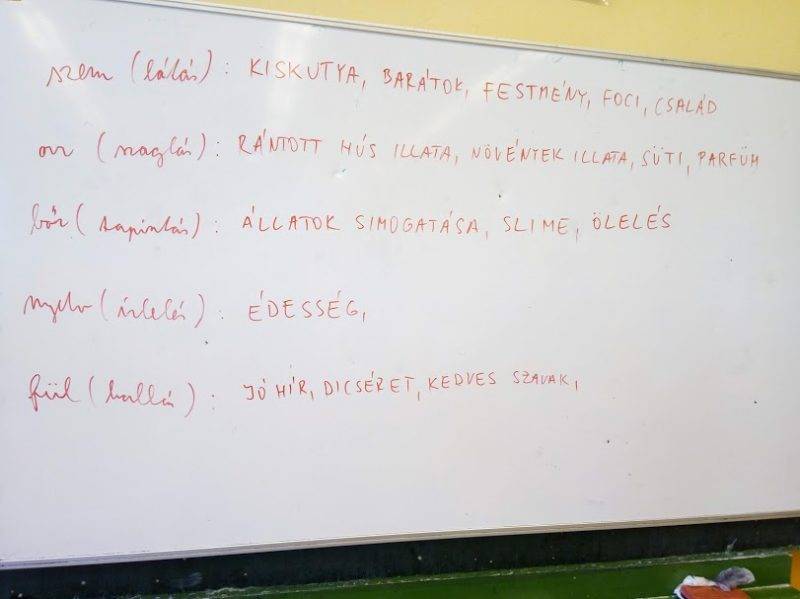 szem (látás): KISKUTYA, BARÁTOK, FESTMÉNY, FOCI, CSALÁD
orr (szaglás): RÁNTOTT HÚS ILLATA, NÖVÉNYEK ILLATA, SÜTI, PARFÜM
bőr (tapintás): ÁLLATOK SIMOGATÁSA, SLIME, ÖLELÉS
nyelv (ízlelés): ÉDESSÉG,
fül (hallás): JÓ HÍR, DICSÉRET, KEDVES SZAVAK,